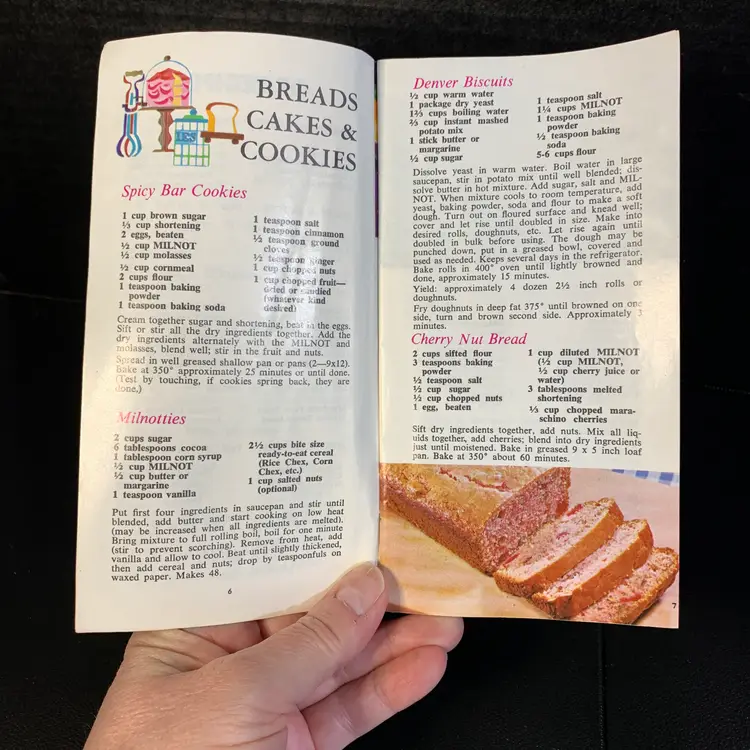 BREADS
CAKES &
COOKIES
Spicy Bar Cookies
1 cup brown sugar
⅓ cup shortening
2 eggs, beaten
½ cup MILNOT
½ cup molasses
½ cup cornmeal
2 cups flour
1 teaspoon baking
powder
1 teaspoon baking soda
1 teaspoon salt
1 teaspoon cinnamon
½ teaspoon ground
cloves
½ teaspoon ginger
1 cup chopped nuts
1 cup chopped fruit—
dried or candied
(whatever kind
desired)
Cream together sugar and shortening, beat in the eggs.
Sift or stir all the dry ingredients together. Add the
dry ingredients alternately with the MILNOT and
molasses, blend well; stir in the fruit and nuts.
Spread in well greased shallow pan or pans (2—9x12).
Bake at 350° approximately 25 minutes or until done.
(Test by touching, if cookies spring back, they are
done.)
Milnotties
2 cups sugar
6 tablespoons cocoa
1 tablespoon corn syrup
½ cup MILNOT
½ cup butter or
margarine
1 teaspoon vanilla
2½ cups bite size
ready-to-eat cereal
(Rice Chex, Corn
Chex, etc.)
1 cup salted nuts
(optional)
Put first four ingredients in saucepan and stir until
blended, add butter and start cooking on low heat
(may be increased when all ingredients are melted).
Bring mixture to full rolling boil, boil for one minute
(stir to prevent scorching). Remove from heat, add
vanilla and allow to cool. Beat until slightly thickened,
then add cereal and nuts; drop by teaspoonfuls on
waxed paper. Makes 48.
6
Denver Biscuits
½ cup warm water
1 package dry yeast
1⅔ cups boiling water
⅔ cup instant mashed
potato mix
1 stick butter or
margarine
½ cup sugar
1 teaspoon salt
1¼ cups MILNOT
1 teaspoon baking
powder
½ teaspoon baking
soda
5-6 cups flour
Dissolve yeast in warm water. Boil water in large
saucepan, stir in potato mix until well blended; dis-
solve butter in hot mixture. Add sugar, salt and MIL-
NOT. When mixture cools to room temperature, add
yeast, baking powder, soda and flour to make a soft
dough. Turn out on floured surface and knead well;
cover and let rise until doubled in size. Make into
desired rolls, doughnuts, etc. Let rise again until
doubled in bulk before using. The dough may be
punched down, put in a greased bowl, covered and
used as needed. Keeps several days in the refrigerator.
Bake rolls in 400° oven until lightly browned and
done, approximately 15 minutes.
Yield: approximately 4 dozen 2½ inch rolls or
doughnuts.
Fry doughnuts in deep fat 375° until browned on one
side, turn and brown second side. Approximately 3
minutes.
Cherry Nut Bread
2 cups sifted flour
3 teaspoons baking
powder
½ teaspoon salt
½ cup sugar
½ cup chopped nuts
1 egg, beaten
1 cup diluted MILNOT
(½ cup MILNOT,
½ cup cherry juice or
water)
3 tablespoons melted
shortening
⅓ cup chopped mara-
schino cherries
Sift dry ingredients together, add nuts. Mix all liq-
uids together, add cherries; blend into dry ingredients
just until moistened. Bake in greased 9 x 5 inch loaf
pan. Bake at 350° about 60 minutes.
7